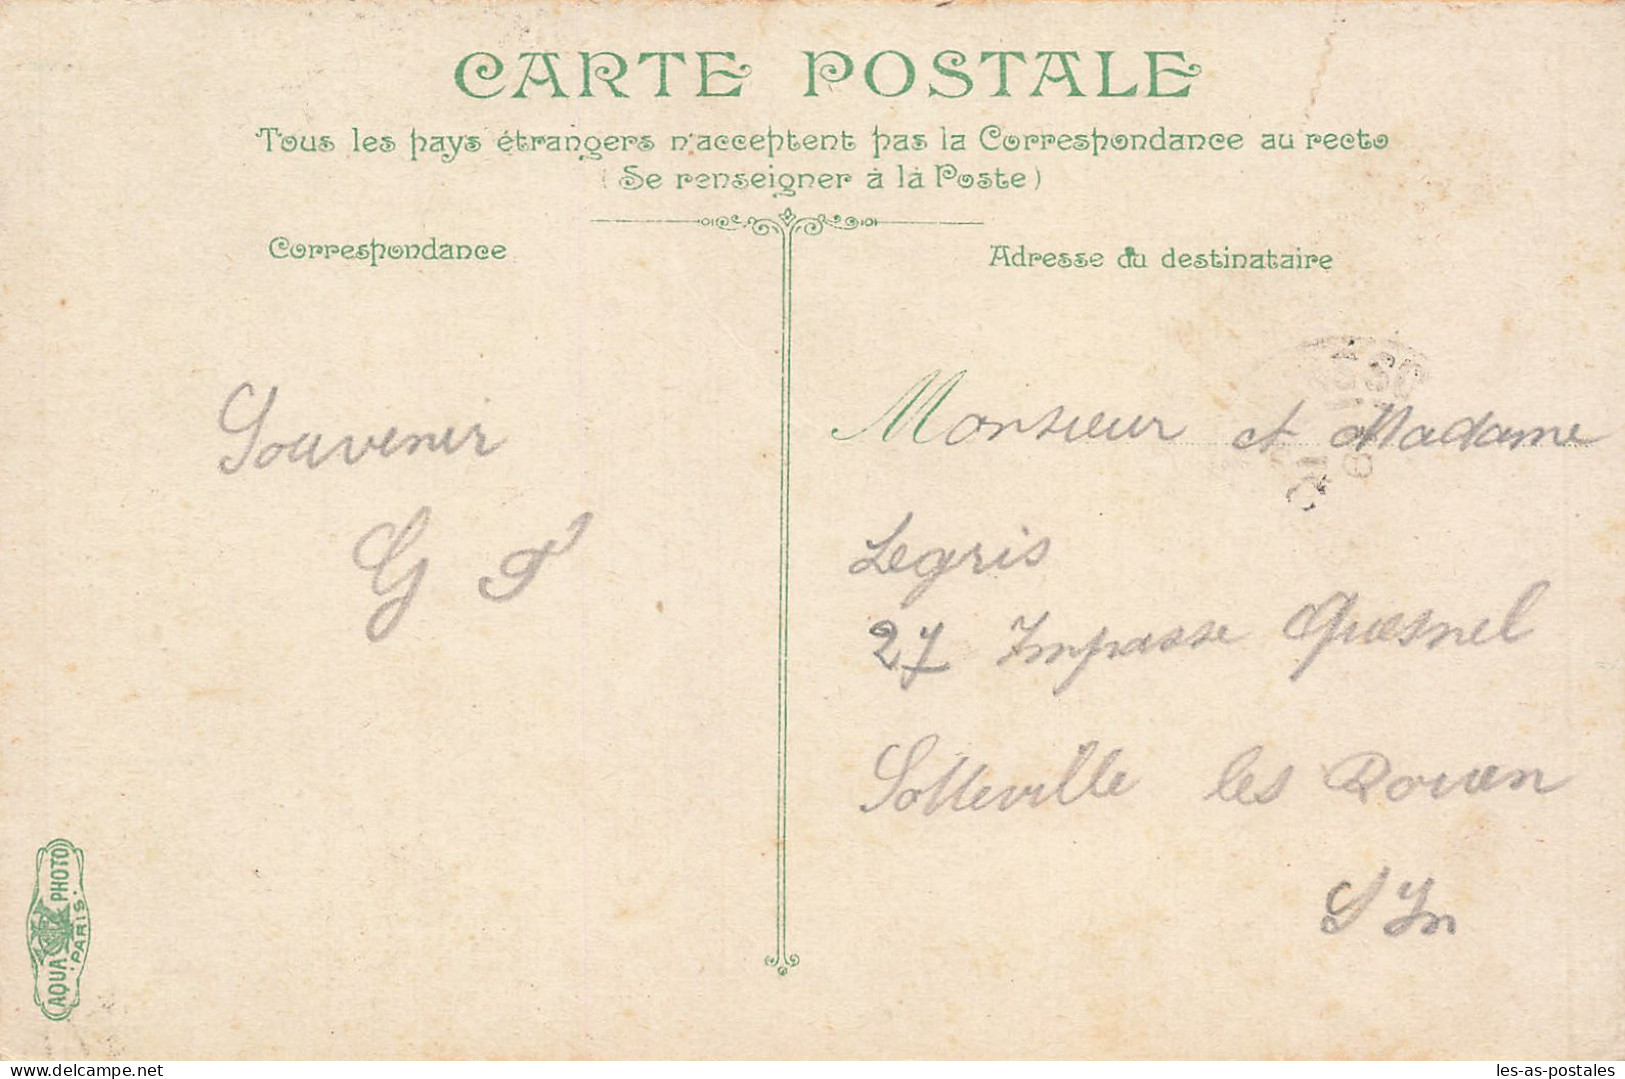 CARTE POSTALE
Tous les pays étrangers n'acceptent pas la Correspondance au recto
(Se renseigner à la Poste)
Correspondance
Adresse du destinataire
Souvenir
G
Monsieur et Madame
Legris
27 Impasse Quesnel
Sotteville les Rouen
S In
AQUA PHOTO
PARIS
les-as-postales